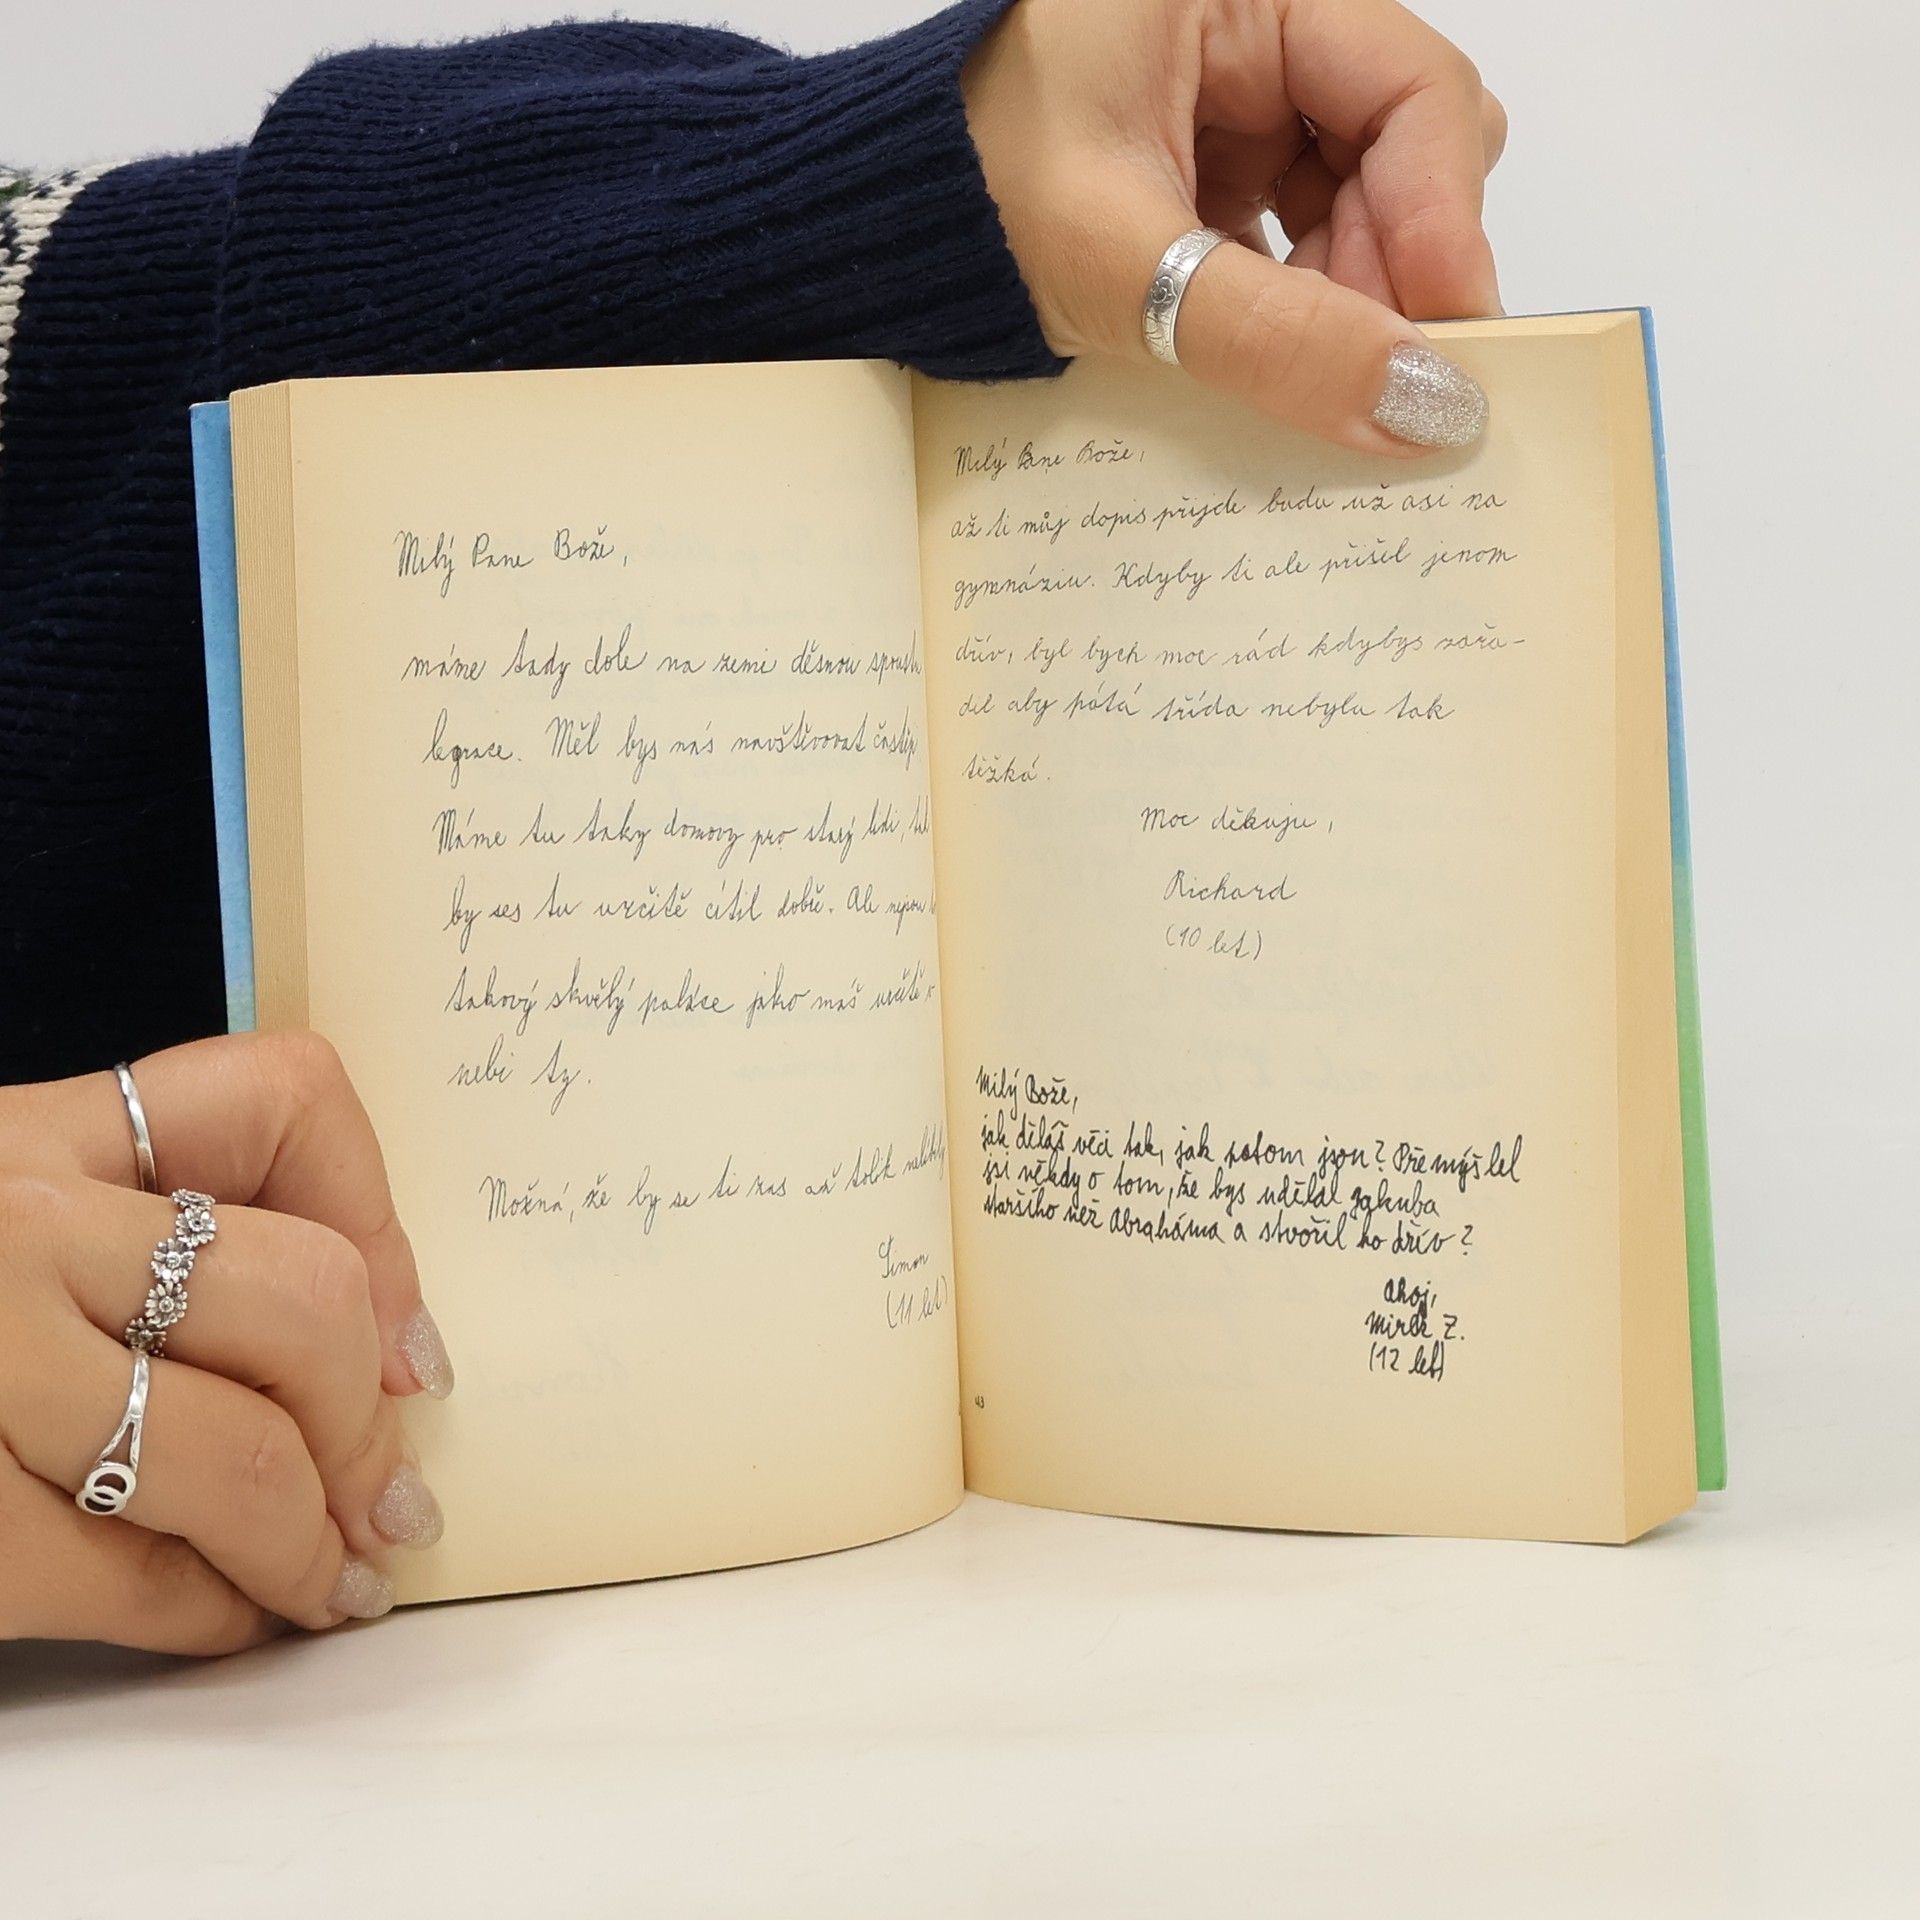 Milý Pane Bože,
máme tady dole na zemi děsnou
legrace. Měl bys nás navštěvovat častěji
Máme tu taky domovy pro starý lidi,
by ses tu určitě cítil dobře. Ale
takový skvělý paláce jako máš určitě v
nebi ty.
Možná, že by se ti zas až tolik nelíbily
Šimon
(11 let)
Milý Pane Bože,
až ti můj dopis přijde budu už asi na
gymnáziu. Kdyby ti ale přišel jenom
dřív, byl bych moc rád kdybys zařa-
dil aby pátá třída nebyla tak
těžká.
Moc děkuju,
Richard
(10 let)
Milý Bože,
jak děláš věci tak, jak potom jsou? Přemýšlel
jsi někdy o tom, že bys udělal Jakuba
staršího než Abraháma a stvořil ho dřív?
Ahoj,
Mirek Z.
(12 let)
43